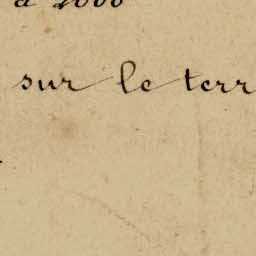 à 2000
sur le terr